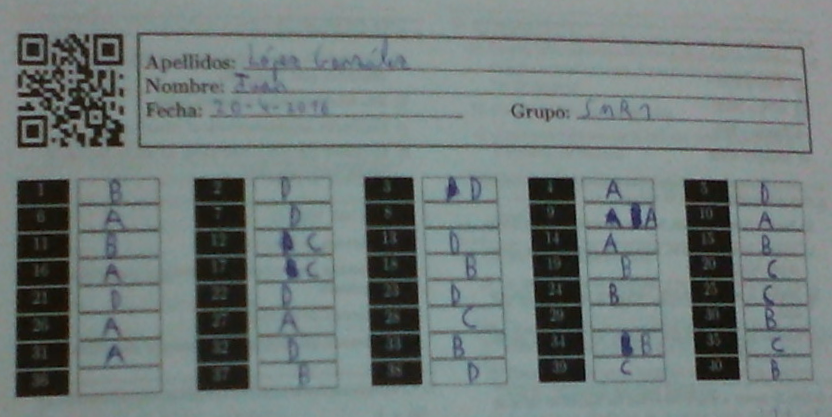 Apellidos: López González
Nombre: Juan
Fecha: 20-4-2016 Grupo: SMR1
1 B 2 D 3 D 4 A 5 D
6 A 7 D 8 9 A A 10 A
11 B 12 C 13 D 14 A 15 B
16 A 17 C 18 B 19 B 20 C
21 D 22 D 23 D 24 B 25 C
26 A 27 A 28 C 29 30 B
31 A 32 D 33 B 34 B 35 C
36 37 B 38 D 39 C 40 B